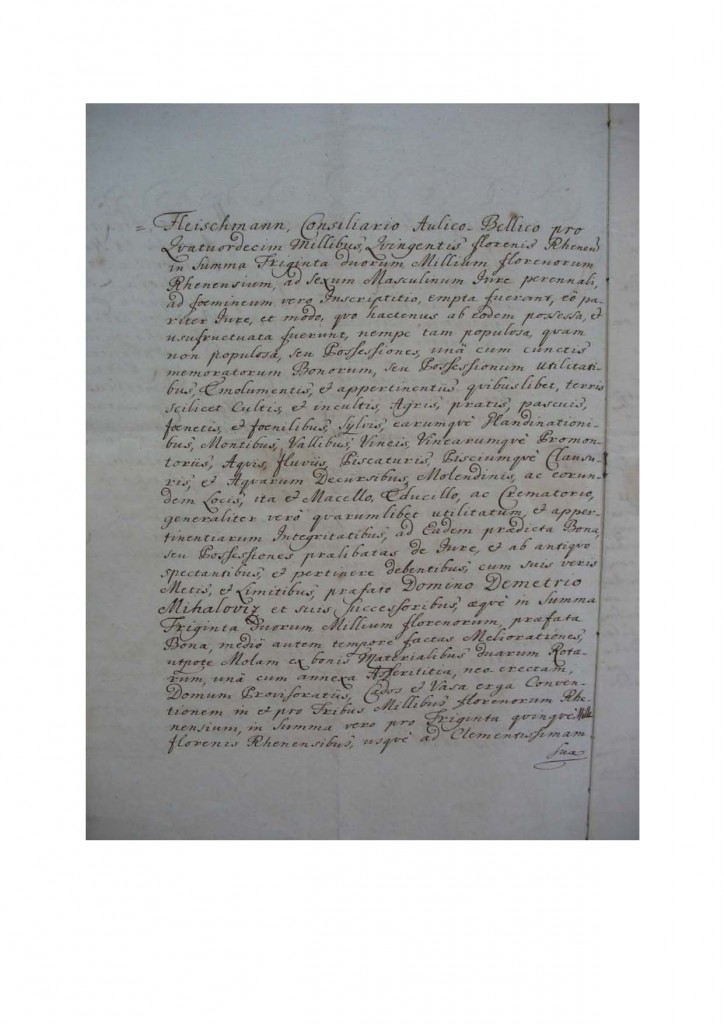 = Fleischmann, Consiliario Aulico-Bellico pro
Qvatuordecim Millibus, Qvingentis florenis Rhenens
in Summa Triginta duorum Millium florenorum
Rhenensium, ad Sexum Masculinum Iure perennali,
ad foemineum vero Inscriptitio, empta fuerant, eô pa-
riter Iure, et modo, qvo hactenus ab Eodem possessa, et
usufructuata fuerunt, nempe tam populosa, qvam
non populosa, seu Possessiones, unâ cum cunctis
memoratorum Bonorum, seu Possessionum utilitati-
bus, Emolumentis, et appertinentiis qvibuslibet, terris
scilicet Cultis, et incultis, Agris, pratis, pascuis,
foenetis, et foenilibus, Sylvis, earumqvè Glandinationi-
bus, Montibus, Vallibus, Vineis, Vinearumqvè Promon-
toriis, Aqvis, fluviis, Piscaturis, Pisciumqvè Clausu-
ris, et Aqvarum Decursibus, Molendinis, ac eorun-
dem Locis, ita et Macello, Educillo, ac Crematorio,
generaliter verò qvarumlibet utilitatum, et apper-
tinentiarum Integritatibus, ad Eadem praedicta Bona,
seu Possessiones praelibatas de Iure, et ab antiqvo
spectantibus, et pertinere debentibus, cum suis veris
Metis, et Limitibus, praefato Domino Demetrio
Mihaloviz et suis Successoribus, aeqvè in Summa
Triginta Duorum Millium florenorum, praefata
Bona, mediô autem tempore factas Meliorationes,
utpote Molam ex bonis Materialibus duarum Rota-
rum, unâ cum annexa Asserititia, neo-erectam,
Domum Provisoratus, Cados et Vasa erga Conven-
tionem in et pro Tribus Millibus florenorum Rhe-
nensium, in Summa vero pro Triginta quinqvè Mille
florenis Rhenensibus, usqvè ad Clementissimam
Suae